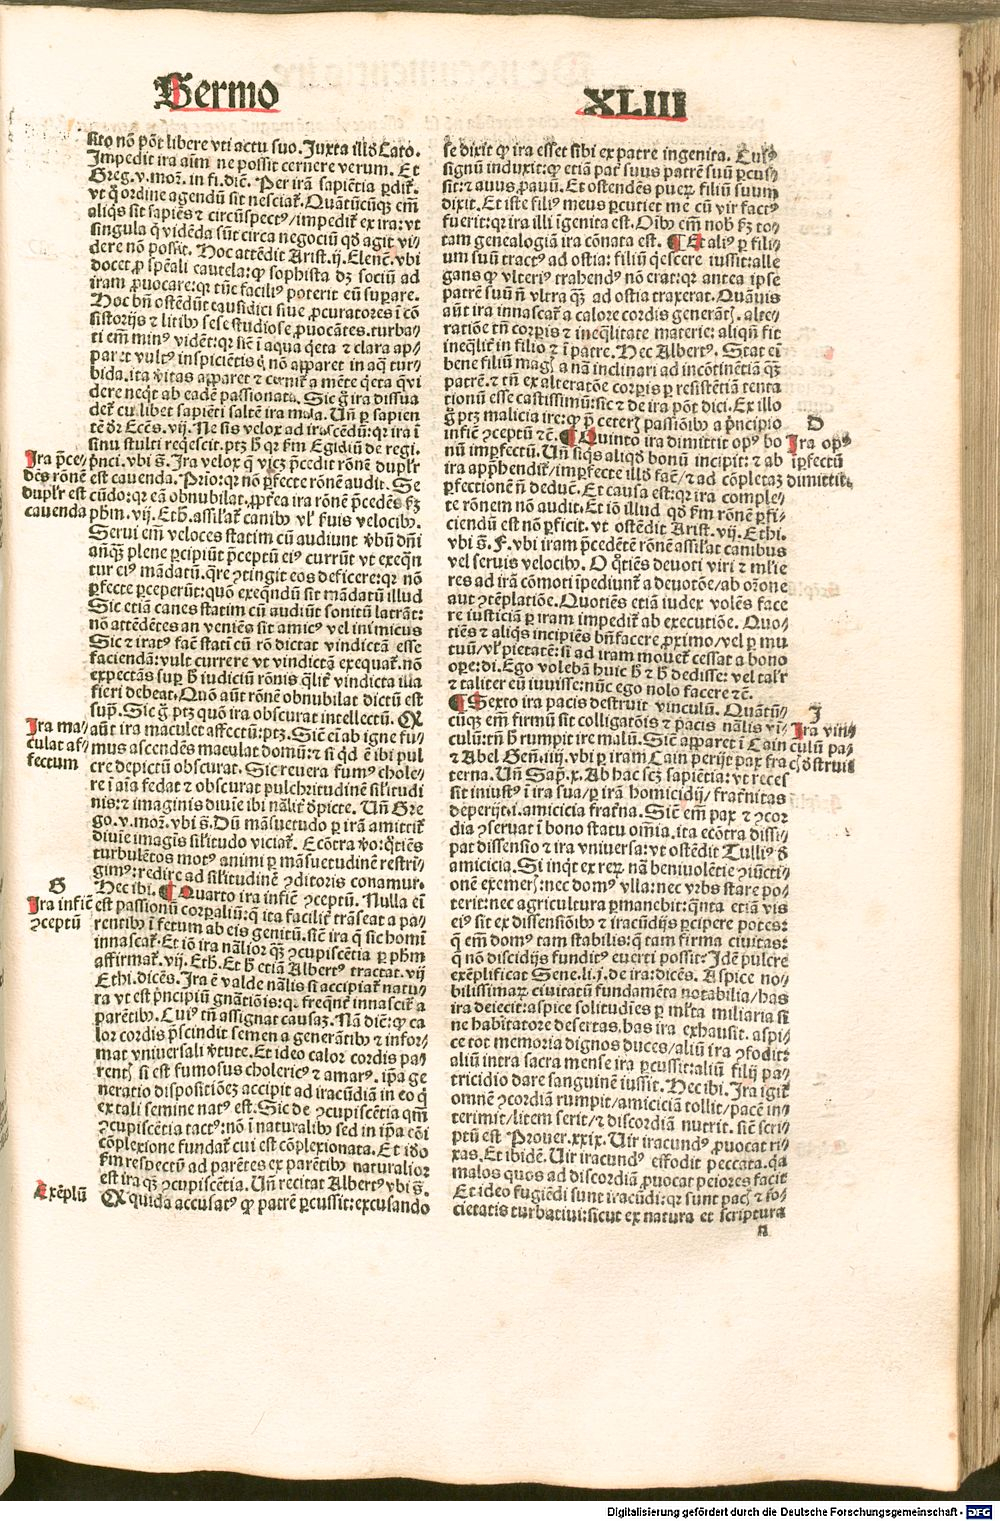 Sermo
XLIII
sito nō pōt libere vti actu suo. Juxta illď Cato.
Impedit ira aīm ne possit cernere verum. Et
Greg. v. moꝛ. in fi. dicē. Per irā sapiētia ꝑdiť.
vt qͥ ordine agendū sit nesciať. Quātūcūqꝫ em̄
aliqͥs sit sapiēs ⁊ circūspectꝰ/impediť ex ira: vt
singula qͥ vidēda sūt circa negociū qď agit vi⸗
dere nō possit. Hoc attēdit Arist. ij. Elenc̄. vbi
docet ꝓ spēali cautela: ꝙ sophista dꝫ sociū ad
iram ꝓuocare: qꝛ tūc faciliꝰ poterit eū suꝑare.
Hoc bn̄ ostēdūt causidici siue ꝓcuratores ī cō
sistorijs ⁊ litibꝰ sese studiose ꝓuocātes. turba⸗
ti em̄ minꝰ vidēt: qꝛ sic̄ ī aqua qͥeta ⁊ clara ap⸗
paret vultꝰ inspiciētis qͥ nō apparet in aq̄ tur⸗
bida. ita v̓itas apparet ⁊ cerniť a mēte qͥeta q̄ vi
dere neqͥt ab eadē passionata. Sic g̊ ira dissua
deť cuilibet sapiēti saltē ira mala. Un̄ ꝑ sapien
tē dꝛ Eccs̄. vij. Ne sis velox ad irascēdū: qꝛ ira ī
sinu stulti reqͥescit. ptꝫ h̓ qꝛ ẜm Egidiū de regi.
pͥnci. vbi s̄. Ira velox q̄ vicꝫ pͥcedit rōnē duplr̄
est cauenda. Prio: qꝛ nō ꝑfecte rōnē audit. Se
cūdo: qꝛ eā obnubilat. ꝓpt̓ea ira rōnē pͥcedēs ẜꝫ
phm̄. vij. Eth̓. assil̓ať canibꝰ vľ ẜuis velocibꝰ.
Serui em̄ veloces statim cū audiunt v̓bū dn̄i
anteqꝫ plene ꝑcipiūt pͥceptū eiꝰ currūt vt exeqͣn
tur eiꝰ mādatū. qͣre ꝯtingit eos deficere: qꝛ nō
ꝑfecte ꝑceperūt: quō exeqͥndū sit mādatū illud
Sic etiā canes statim cū audiūt sonitū latrāt:
nō attēdētes an veniēs sit amicꝰ vel inimicus
Sic ⁊ iratꝰ faēt statī cū rō dictat vindictā esse
faciendā: vult currere vt vindictā exequať. nō
expectās suꝑ h̓ iudiciū rōnis qͣlit̓ vindicta illa
fieri debeat. Quō aūt rōnē obnubilat dictū est
sup̄. Sic g̊ ptꝫ quō ira obscurat intellectū. Qꝫ
aūt ira maculet affectū: ptꝫ. Sic̄ eī ab igne fu⸗
mus ascendēs maculat domū: ⁊ si qͥd ē ibi pul
cre depictū obscurat. Sic reuera fumꝰ chole⸗
re ī aīa fedat ⁊ obscurat pulchritudinē silitudi
nis: ⁊ imaginis diuīe ibi nāliť dͥpicte. Un̄ Gre
go. v. moꝛ. vbi s̄. Dū māsuetudo ꝑ irā amittiť
diuīe imagīs sil̓itudo viciať. Ecōtra v̓o: qͦtiēs
turbulētos motꝰ animi ꝑ māsuetudinē restri⸗
gimꝰ: redire ad silitudinē ꝯditoris conamur.
Hec ibi. ¶ Quarto ira inficē ꝯceptū. Nulla eī
est passionū corꝑaliū: q̄ ita faciliť trāseat a pa⸗
rentibꝰ ī fetum ab eis genitū. sic̄ ira q̄ sic homī
innascať. Et iō ira nālior qꝫ ꝯcupiscētia ꝑ phm̄
affirmať. vij. Eth̓. Et h̓ etiā Albertꝰ tractat. vij
Ethi. dicēs. Ira ē valde nālis si accipiať natu⸗
ra vt est pͥncipiū gnātiōis: qꝛ freqn̄ť innasciť a
parētibꝰ. Cuiꝰ tn̄ assignat causaꝫ. Nā dic̄: ꝙ ca
lor cordis pͥscindit semen a generātibꝰ ⁊ infor⸗
mat vniuersali v̓tute. Et ideo calor cordis pa⸗
rentꝫ si est fumosus cholericꝰ ⁊ amarꝰ. ip̄a ge
neratio dispositiōeꝫ accipit ad iracūdiā in eo qͥ
ex tali semine natꝰ est. Sic de ꝯcupiscētia qm̄
ꝯcupiscētia tactꝰ: nō ī naturalibꝰ sed in ip̄a cōi
cōplexione fundať cui est cōplexionata. Et iđo
ẜm respectū ad parētes ex parētibꝰ naturalior
est ira qꝫ ꝯcupiscētia. Un̄ recitat Albertꝰ vbi s̄.
Qꝫ quida accusatꝰ ꝙ patrē ꝑcussit: excusando
Ira pͥce⸗
dēs rōnē
duplr̄ est
cauenda
Ira ma⸗
culat af⸗
fectum
G
Ira inficē
ꝯceptū
Exēplū
se dixit ꝙ ira esset sibi ex patre ingenita. Cuiꝰ
signū induxit: ꝙ etiā pať suus patrē suū ꝑcus⸗
sit: ⁊ auus ꝓauū. Et ostendēs pueꝝ filiū suum
dixit. Et iste filiꝰ meus ꝑcutiet me cū vir factꝰ
fuerit: qꝛ ira illi īgenita est. Oībꝰ em̄ nob̓ ẜꝫ to⸗
tam genealogiā ira cōnata est. ¶ Et aliꝰ ꝑ fili⸗
um suū tractꝰ ad ostia: filiū qͥescere iussit: alle
gans ꝙ vlteriꝰ trahendꝰ nō erat: qꝛ antea ipse
patrē suū n̄ vltra qꝫ ad ostia traxerat. Quāuis
aūt ira innascať a calore cordis generātꝫ. alte⸗
ratiōe tn̄ corꝑis ⁊ ineqͣlitate materie: aliqn̄ fit
ineqͣliť in filio ⁊ ī patre. Hec Albertꝰ. Stat eī
bene filiū magꝫ a nā inclinari ad incōtinētiā qꝫ
patrē. ⁊ tn̄ ex alteratōe corꝑis ꝑ resistētiā tenta
tionū esse castissimū: sic ⁊ de ira pōt dici. Ex illo
g̊ ptꝫ malicia ire: ꝙ pͥ ceterꝫ passiōibꝰ a pͥncipio
infic̄ ꝯceptū ⁊c̄. ¶ Quinto ira dimittit opꝰ bo
nū imꝑfectū. Un̄ siqͥs aliqď bonū incipit: ⁊ ab
ira appͥhendiť/imꝑfecte illď fac̄/⁊ ad cōpletaꝫ
ꝑfectionē n̄ deduc̄. Et causa est: qꝛ ira comple⸗
te rōnem nō audit. Et iō illud qď ẜm rōnē ꝑfi⸗
ciendū est nō ꝑficit. vt ostēdit Arist. vij. Ethi.
vbi s̄. F. vbi iram pͥcedētē rōnē assil̓at canibus
vel seruis velocibꝰ. O qͦtiēs deuoti viri ⁊ ml̓ie
res ad irā cōmoti īpediunť a deuotōe/ab orōne
aut ꝯtēplatiōe. Quotiēs etiā iudex volēs face
re iusticiā ꝑ iram impediť ab executiōe. Quo⸗
tiēs ⁊ aliqͥs incipiēs bn̄facere ꝓximo/vel ꝑ mu
tuū/vľ pietatē: si ad iram moueť cessat a bono
oꝑe: di. Ego volebā huic h̓ ⁊ h̓ dedisse: vel talr̄
⁊ taliter eū iuuisse: nūc ego nolo facere ⁊c̄.
¶ Sexto ira pacis destruit vinculū. Quātū⸗
cūqꝫ em̄ firmū sit colligatōis ⁊ pacis nālis vī⸗
culū: tn̄ h̓ rumpit ire malū. Sic apparet ī Cain
⁊ Abel Geñ. iiij. vbi ꝑ iram Cain perijt pax fra
terna. Un̄ Sap̄. x. Ab hac scꝫ sapiētia: vt reces
sit iniustꝰ ī ira sua/ꝑ irā homicidij/frat̓nitas
deperijt. i. amicicia frat̓na. Sic̄ em̄ pax ⁊ ꝯcor
dia ꝯseruat ī bono statu oīa. ita ecōtra dissi⸗
pat dissensio ⁊ ira vniuersa: vt ostēdit Tulliꝰ đ
amicicia. Si inqͥt ex rerꝝ nā beniuolētie ꝯiūcti⸗
onē exemerꝫ: nec domꝰ vlla: nec vrbs stare po⸗
terit: nec agricultura ꝑmanebit: qͣnta etiā vis
eiꝰ sit ex dissensiōibꝰ ⁊ iracūdijs ꝑcipere potes:
q̄ em̄ domꝰ tam stabilis: q̄ tam firma ciuitas:
q̄ nō discidijs funditꝰ euerti possit: Idē pulcre
exēplificat Sene. li. j. de ira: dicēs. Aspice no⸗
bilissimaꝝ ciuitatū fundamēta notabilia/has
ira deiecit: aspice solitudīes ꝑ ml̓ta miliaria si
ne habitatore desertas, has ira exhausit. aspi⸗
ce tot memoria dignos duces/aliū ira ꝯfodit:
aliū intra sacra mense ira ꝑcussit: aliū filij pa⸗
tricidio dare sanguinē iussit. Hec ibi. Ira igiť
omnē ꝯcordiā rumpit/amiciciā tollit/pacē in⸗
terimit/litem serit/⁊ discordiā nutrit. sic̄ scri⸗
ptū est Prouer. xxix. Uir iracundꝰ ꝓuocat ri⸗
xas. Et ibidē. Uir iracundꝰ effodit peccata. qͣa
malos quos ad discordiā ꝓuocat peiores facit
Et ideo fugiēdi sunt iracūdi: qꝛ sunt pacꝫ ⁊ so⸗
cietatis turbatiui: sicut ex natura et scriptura
D
Ira opꝰ
īꝑfectū
dimittit
J
Ira vin⸗
culū pa⸗
cꝫ dͥstruit
n
Digitalisierung gefördert durch die Deutsche Forschungsgemeinschaft - DFG